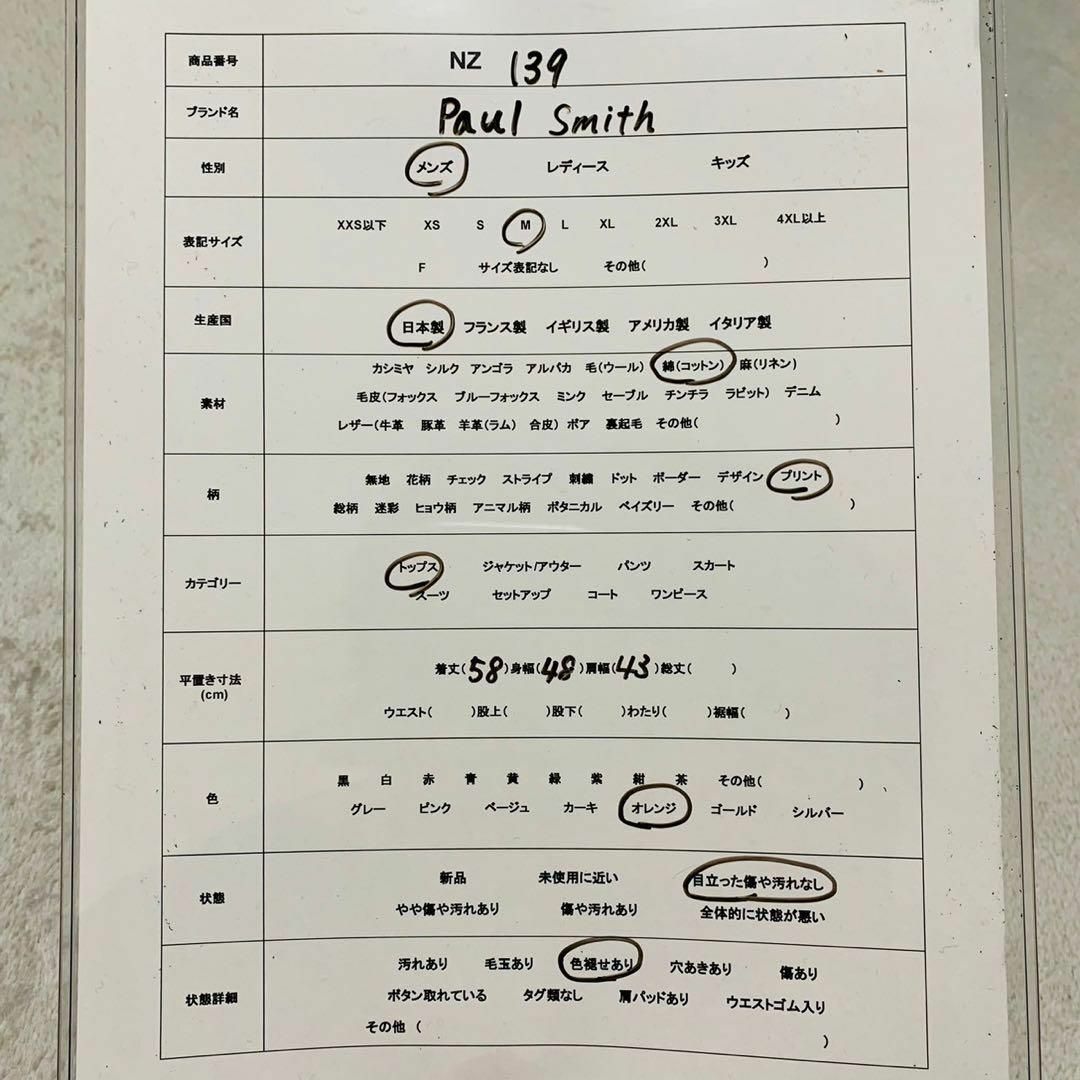 商品番号 NZ 139
ブランド名 Paul Smith
性別 メンズ レディース キッズ
表記サイズ
XXS以下 XS S M L XL 2XL 3XL 4XL以上
F サイズ表記なし その他( )
生産国 日本製 フランス製 イギリス製 アメリカ製 イタリア製
素材
カシミヤ シルク アンゴラ アルパカ 毛(ウール) 綿(コットン) 麻(リネン)
毛皮(フォックス ブルーフォックス ミンク セーブル チンチラ ラビット) デニム
レザー(牛革 豚革 羊革(ラム) 合皮) ボア 裏起毛 その他( )
柄
無地 花柄 チェック ストライプ 刺繍 ドット ボーダー デザイン プリント
総柄 迷彩 ヒョウ柄 アニマル柄 ボタニカル ペイズリー その他( )
カテゴリー
トップス ジャケット/アウター パンツ スカート
スーツ セットアップ コート ワンピース
平置き寸法
(cm)
着丈(58)身幅(48)肩幅(43)総丈( )
ウエスト( )股上( )股下( )わたり( )裾幅( )
色
黒 白 赤 青 黄 緑 紫 紺 茶 その他( )
グレー ピンク ベージュ カーキ オレンジ ゴールド シルバー
状態
新品 未使用に近い 目立った傷や汚れなし
やや傷や汚れあり 傷や汚れあり 全体的に状態が悪い
状態詳細
汚れあり 毛玉あり 色褪せあり 穴あきあり 傷あり
ボタン取れている タグ類なし 肩パッドあり ウエストゴム入り
その他 ( )